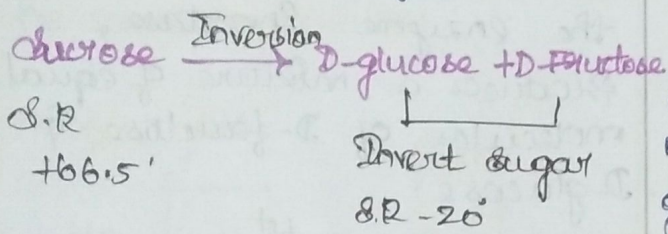 Sucrose Inversion → D-glucose + D-Fructose
S.R
+66.5°
Invert sugar
S.R -20°